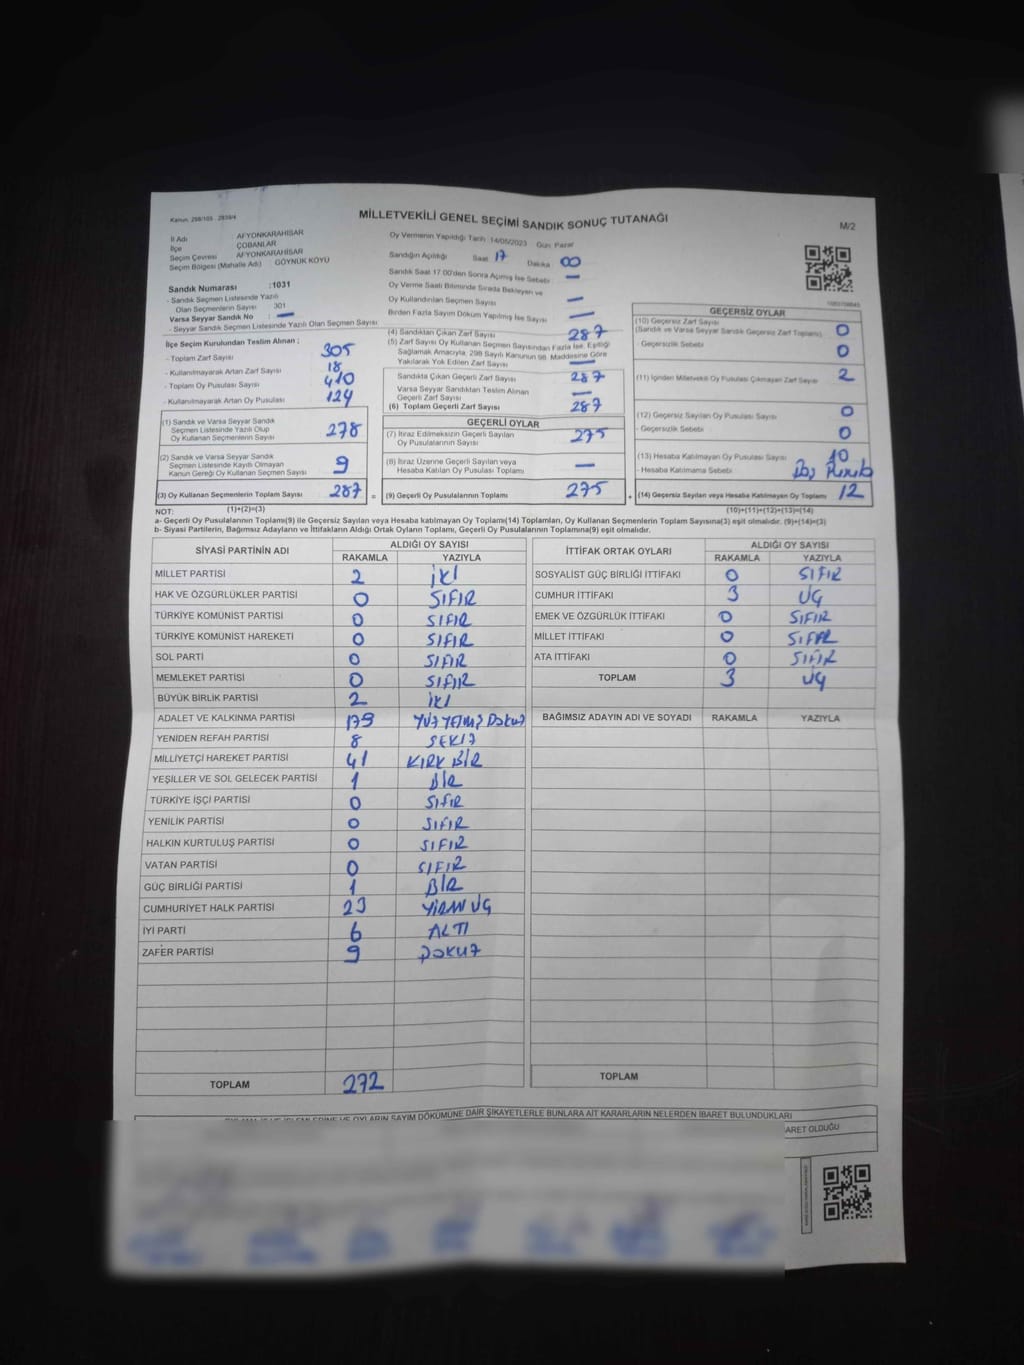 Kanun: 298/105 - 2839/4
MİLLETVEKİLİ GENEL SEÇİMİ SANDIK SONUÇ TUTANAĞI
M/2
İl Adı : AFYONKARAHİSAR
İlçe : ÇOBANLAR
Seçim Çevresi : AFYONKARAHİSAR
Seçim Bölgesi (Mahalle Adı) : GÖYNÜK KÖYÜ
Oy Vermenin Yapıldığı Tarih :14/05/2023 Gün: Pazar
Sandığın Açıldığı Saat 17 Dakika 00
Sandık Saat 17:00'den Sonra Açılmış İse Sebebi : —
Oy Verme Saati Bitiminde Sırada Bekleyen ve
Oy Kullandırılan Seçmen Sayısı : —
Birden Fazla Sayım Döküm Yapılmış İse Sayısı : —
Sandık Numarası :1031
- Sandık Seçmen Listesinde Yazılı
Olan Seçmenlerin Sayısı : 301
Varsa Seyyar Sandık No : —
- Seyyar Sandık Seçmen Listesinde Yazılı Olan Seçmen Sayısı :
İlçe Seçim Kurulundan Teslim Alınan ;
- Toplam Zarf Sayısı 305
- Kullanılmayarak Artan Zarf Sayısı 18
- Toplam Oy Pusulası Sayısı 410
- Kullanılmayarak Artan Oy Pusulası 124
(1) Sandık ve Varsa Seyyar Sandık
Seçmen Listesinde Yazılı Olup
Oy Kullanan Seçmenlerin Sayısı 278
(2) Sandık ve Varsa Seyyar Sandık
Seçmen Listesinde Kayıtlı Olmayan
Kanun Gereği Oy Kullanan Seçmen Sayısı 9
(3) Oy Kullanan Seçmenlerin Toplam Sayısı 287 =
(4) Sandıktan Çıkan Zarf Sayısı 287
(5) Zarf Sayısı Oy Kullanan Seçmen Sayısından Fazla İse, Eşitliği
Sağlamak Amacıyla, 298 Sayılı Kanunun 98. Maddesine Göre
Yakılarak Yok Edilen Zarf Sayısı —
Sandıkta Çıkan Geçerli Zarf Sayısı 287
Varsa Seyyar Sandıktan Teslim Alınan
Geçerli Zarf Sayısı —
(6) Toplam Geçerli Zarf Sayısı 287
GEÇERLİ OYLAR
(7) İtiraz Edilmeksizin Geçerli Sayılan
Oy Pusulalarının Sayısı 275
(8) İtiraz Üzerine Geçerli Sayılan veya
Hesaba Katılan Oy Pusulası Toplamı —
(9) Geçerli Oy Pusulalarının Toplamı 275 +
GEÇERSİZ OYLAR
(10) Geçersiz Zarf Sayısı
(Sandık ve Varsa Seyyar Sandık Geçersiz Zarf Toplamı) 0
- Geçersizlik Sebebi 0
(11) İçinden Milletvekili Oy Pusulası Çıkmayan Zarf Sayısı 2
(12) Geçersiz Sayılan Oy Pusulası Sayısı 0
- Geçersizlik Sebebi 0
(13) Hesaba Katılmayan Oy Pusulası Sayısı 10
- Hesaba Katılmama Sebebi
(14) Geçersiz Sayılan veya Hesaba Katılmayan Oy Toplamı 12
NOT: (1)+(2)=(3) (10)+(11)+(12)+(13)=(14)
a- Geçerli Oy Pusulalarının Toplamı(9) ile Geçersiz Sayılan veya Hesaba katılmayan Oy Toplamı(14) Toplamları, Oy Kullanan Seçmenlerin Toplam Sayısına(3) eşit olmalıdır. (9)+(14)=(3)
b- Siyasi Partilerin, Bağımsız Adayların ve İttifakların Aldığı Ortak Oyların Toplamı, Geçerli Oy Pusulalarının Toplamına(9) eşit olmalıdır.
SİYASİ PARTİNİN ADI ALDIĞI OY SAYISI
RAKAMLA YAZIYLA
MİLLET PARTİSİ 2 İKİ
HAK VE ÖZGÜRLÜKLER PARTİSİ 0 SIFIR
TÜRKİYE KOMÜNİST PARTİSİ 0 SIFIR
TÜRKİYE KOMÜNİST HAREKETİ 0 SIFIR
SOL PARTİ 0 SIFIR
MEMLEKET PARTİSİ 0 SIFIR
BÜYÜK BİRLİK PARTİSİ 2 İKİ
ADALET VE KALKINMA PARTİSİ 179 YÜZ YETMİŞ DOKUZ
YENİDEN REFAH PARTİSİ 8 SEKİZ
MİLLİYETÇİ HAREKET PARTİSİ 41 KIRK BİR
YEŞİLLER VE SOL GELECEK PARTİSİ 1 BİR
TÜRKİYE İŞÇİ PARTİSİ 0 SIFIR
YENİLİK PARTİSİ 0 SIFIR
HALKIN KURTULUŞ PARTİSİ 0 SIFIR
VATAN PARTİSİ 0 SIFIR
GÜÇ BİRLİĞİ PARTİSİ 1 BİR
CUMHURİYET HALK PARTİSİ 23 YİRMİ ÜÇ
İYİ PARTİ 6 ALTI
ZAFER PARTİSİ 9 DOKUZ
TOPLAM 272
İTTİFAK ORTAK OYLARI ALDIĞI OY SAYISI
RAKAMLA YAZIYLA
SOSYALİST GÜÇ BİRLİĞİ İTTİFAKI 0 SIFIR
CUMHUR İTTİFAKI 3 ÜÇ
EMEK VE ÖZGÜRLÜK İTTİFAKI 0 SIFIR
MİLLET İTTİFAKI 0 SIFIR
ATA İTTİFAKI 0 SIFIR
TOPLAM 3 ÜÇ
BAĞIMSIZ ADAYIN ADI VE SOYADI RAKAMLA YAZIYLA
TOPLAM
VE OYLARIN SAYIM DÖKÜMÜNE DAİR ŞİKAYETLERLE BUNLARA AİT KARARLARIN NELERDEN İBARET BULUNDUKLARI
ARET OLDUĞU